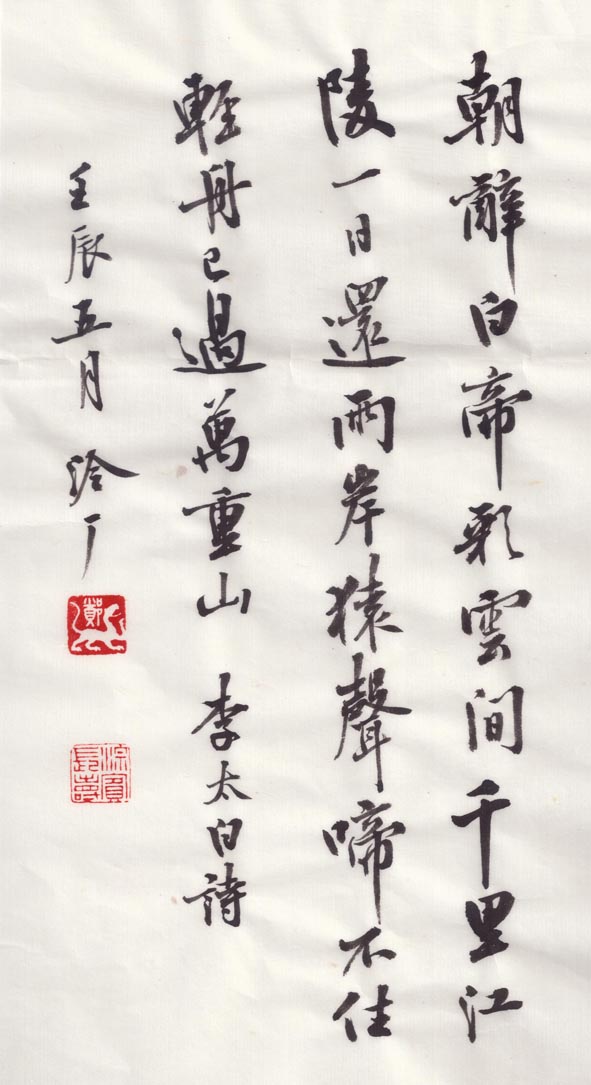 朝辭白帝彩雲間千里江
陵一日還兩岸猿聲啼不住
輕舟已過萬重山 李太白詩
壬辰五月
鄭